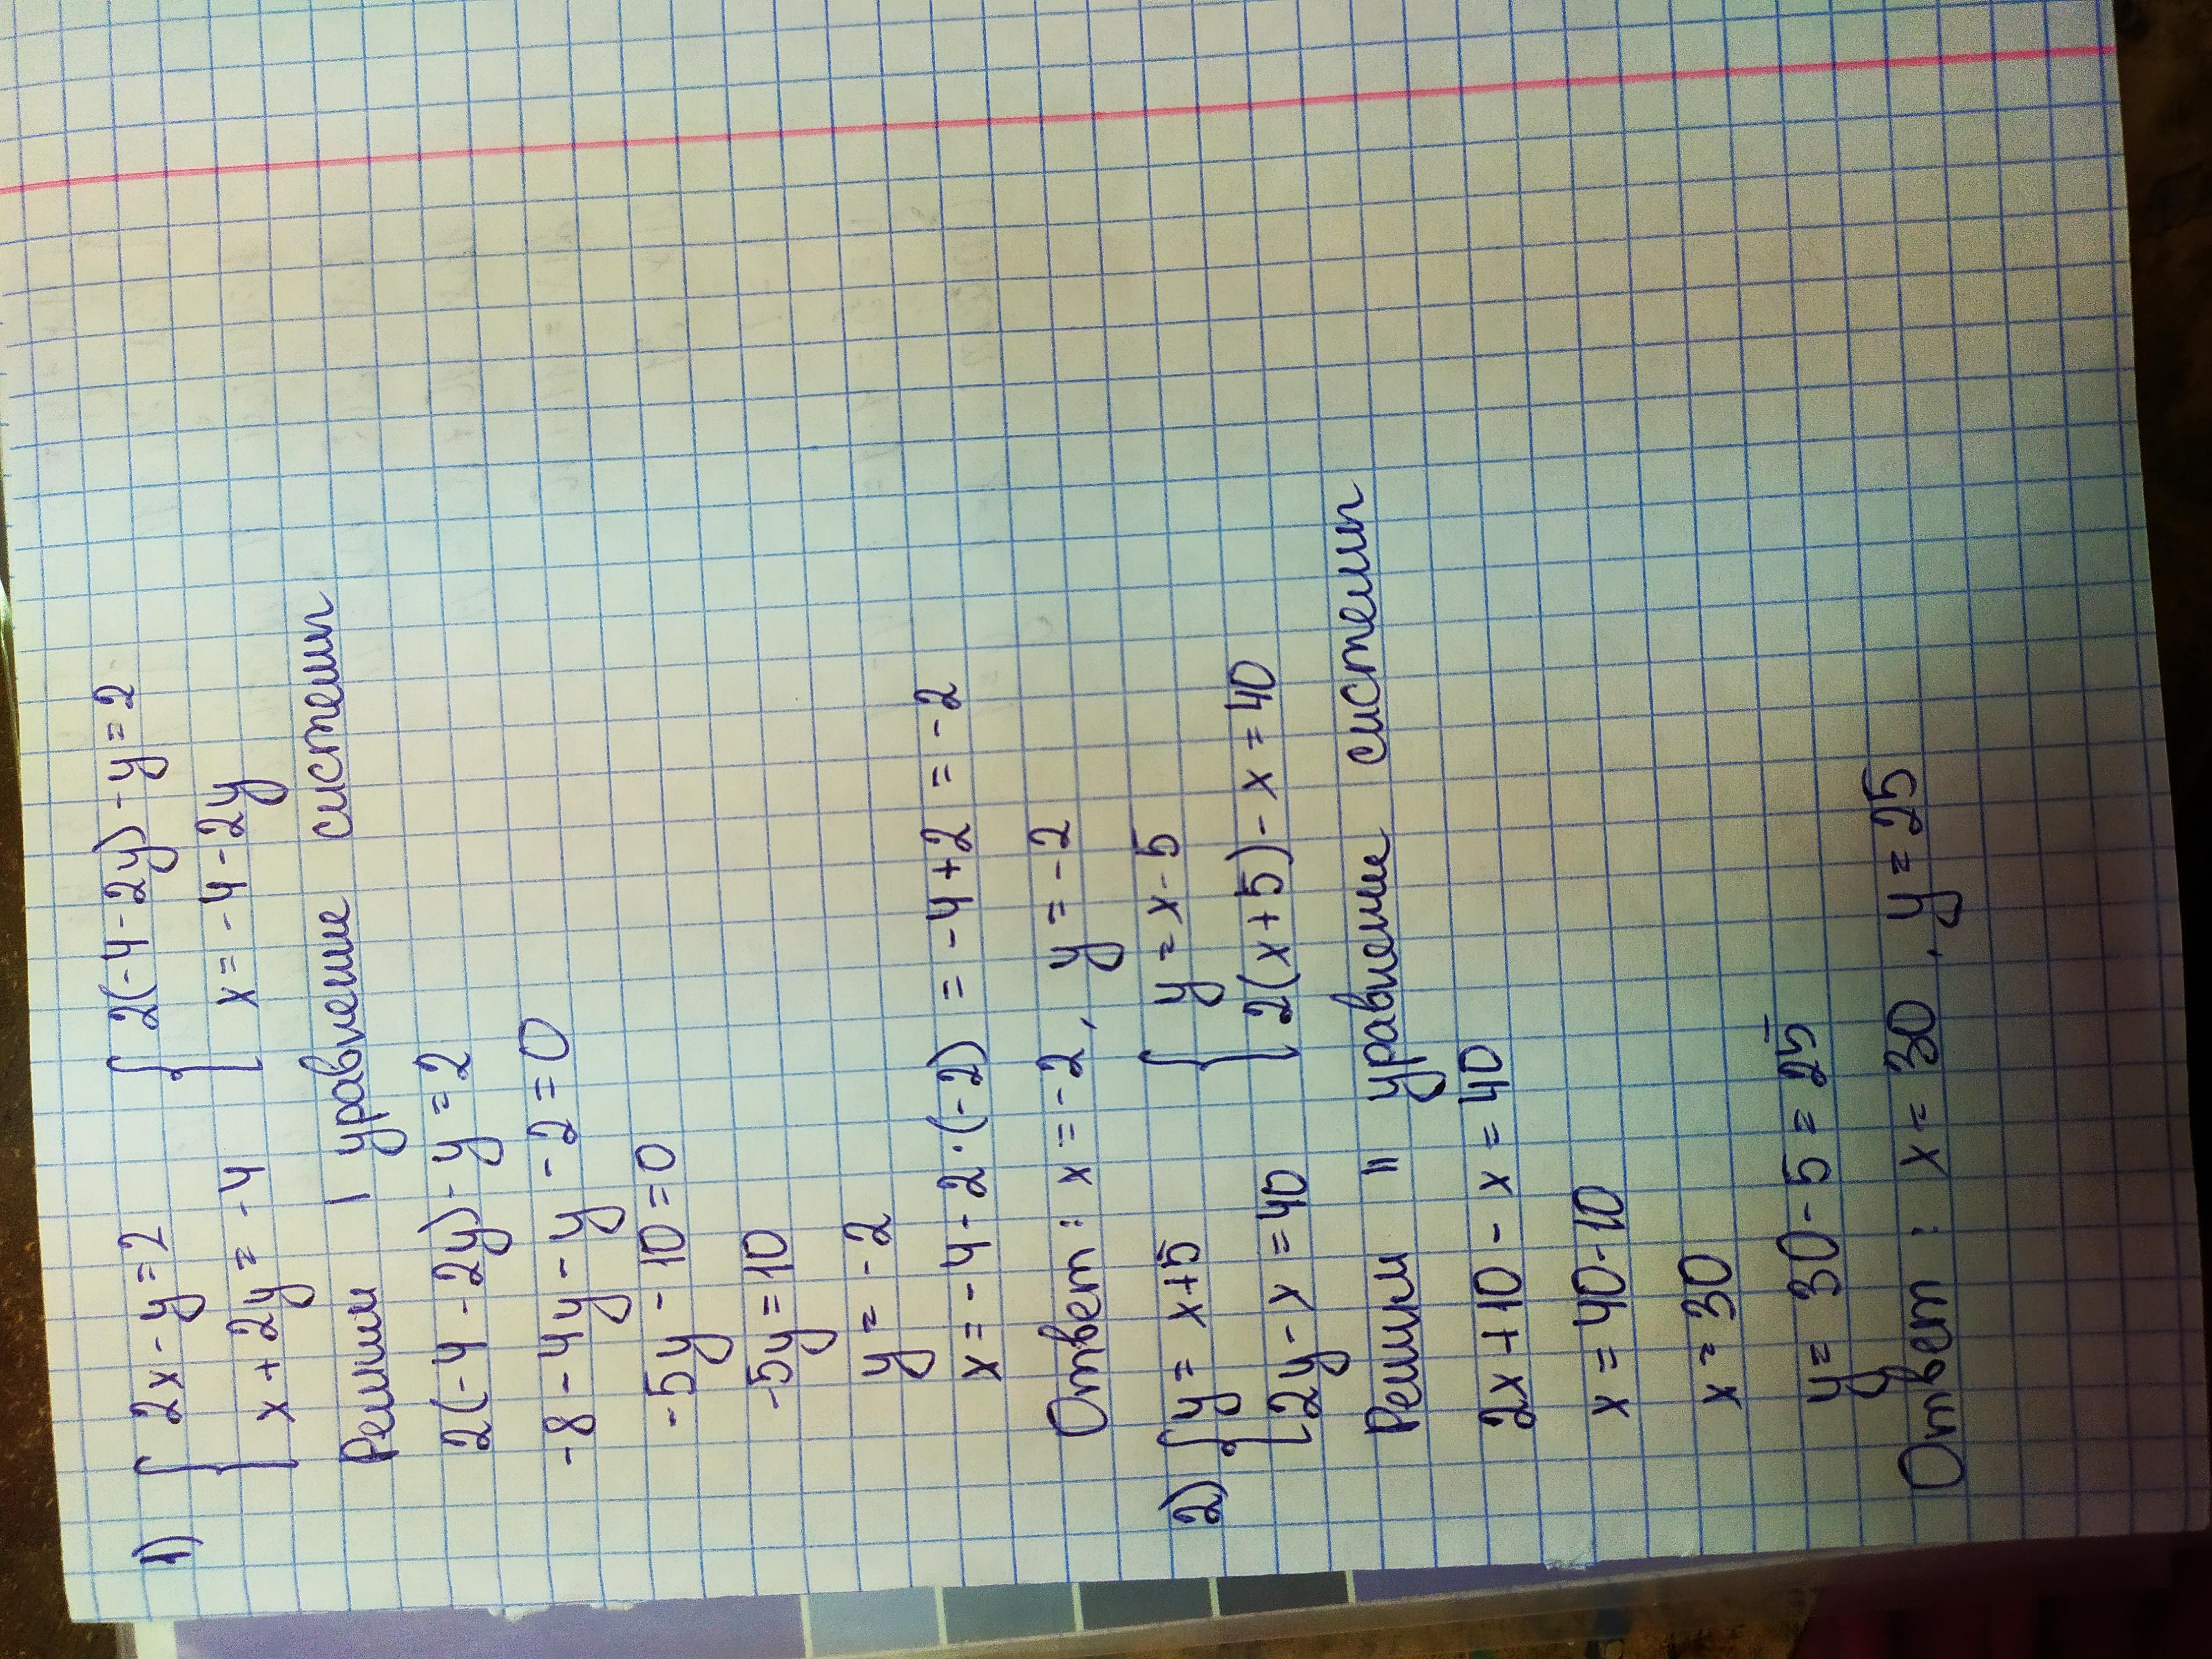 1) { 2x - y = 2 { 2(-4 - 2y) - y = 2
x + 2y = -4 x = -4 - 2y
Решим I уравнение системы
2(-4 - 2y) - y = 2
-8 - 4y - y - 2 = 0
-5y - 10 = 0
-5y = 10
y = -2
x = -4 - 2·(-2) = -4 + 2 = -2
Ответ: x = -2, y = -2
2) { y = x + 5 { y = x - 5
2y - x = 40 2(x + 5) - x = 40
Решим II уравнение системы
2x + 10 - x = 40
x = 40 - 10
x = 30
y = 30 - 5 = 25
Ответ: x = 30, y = 25